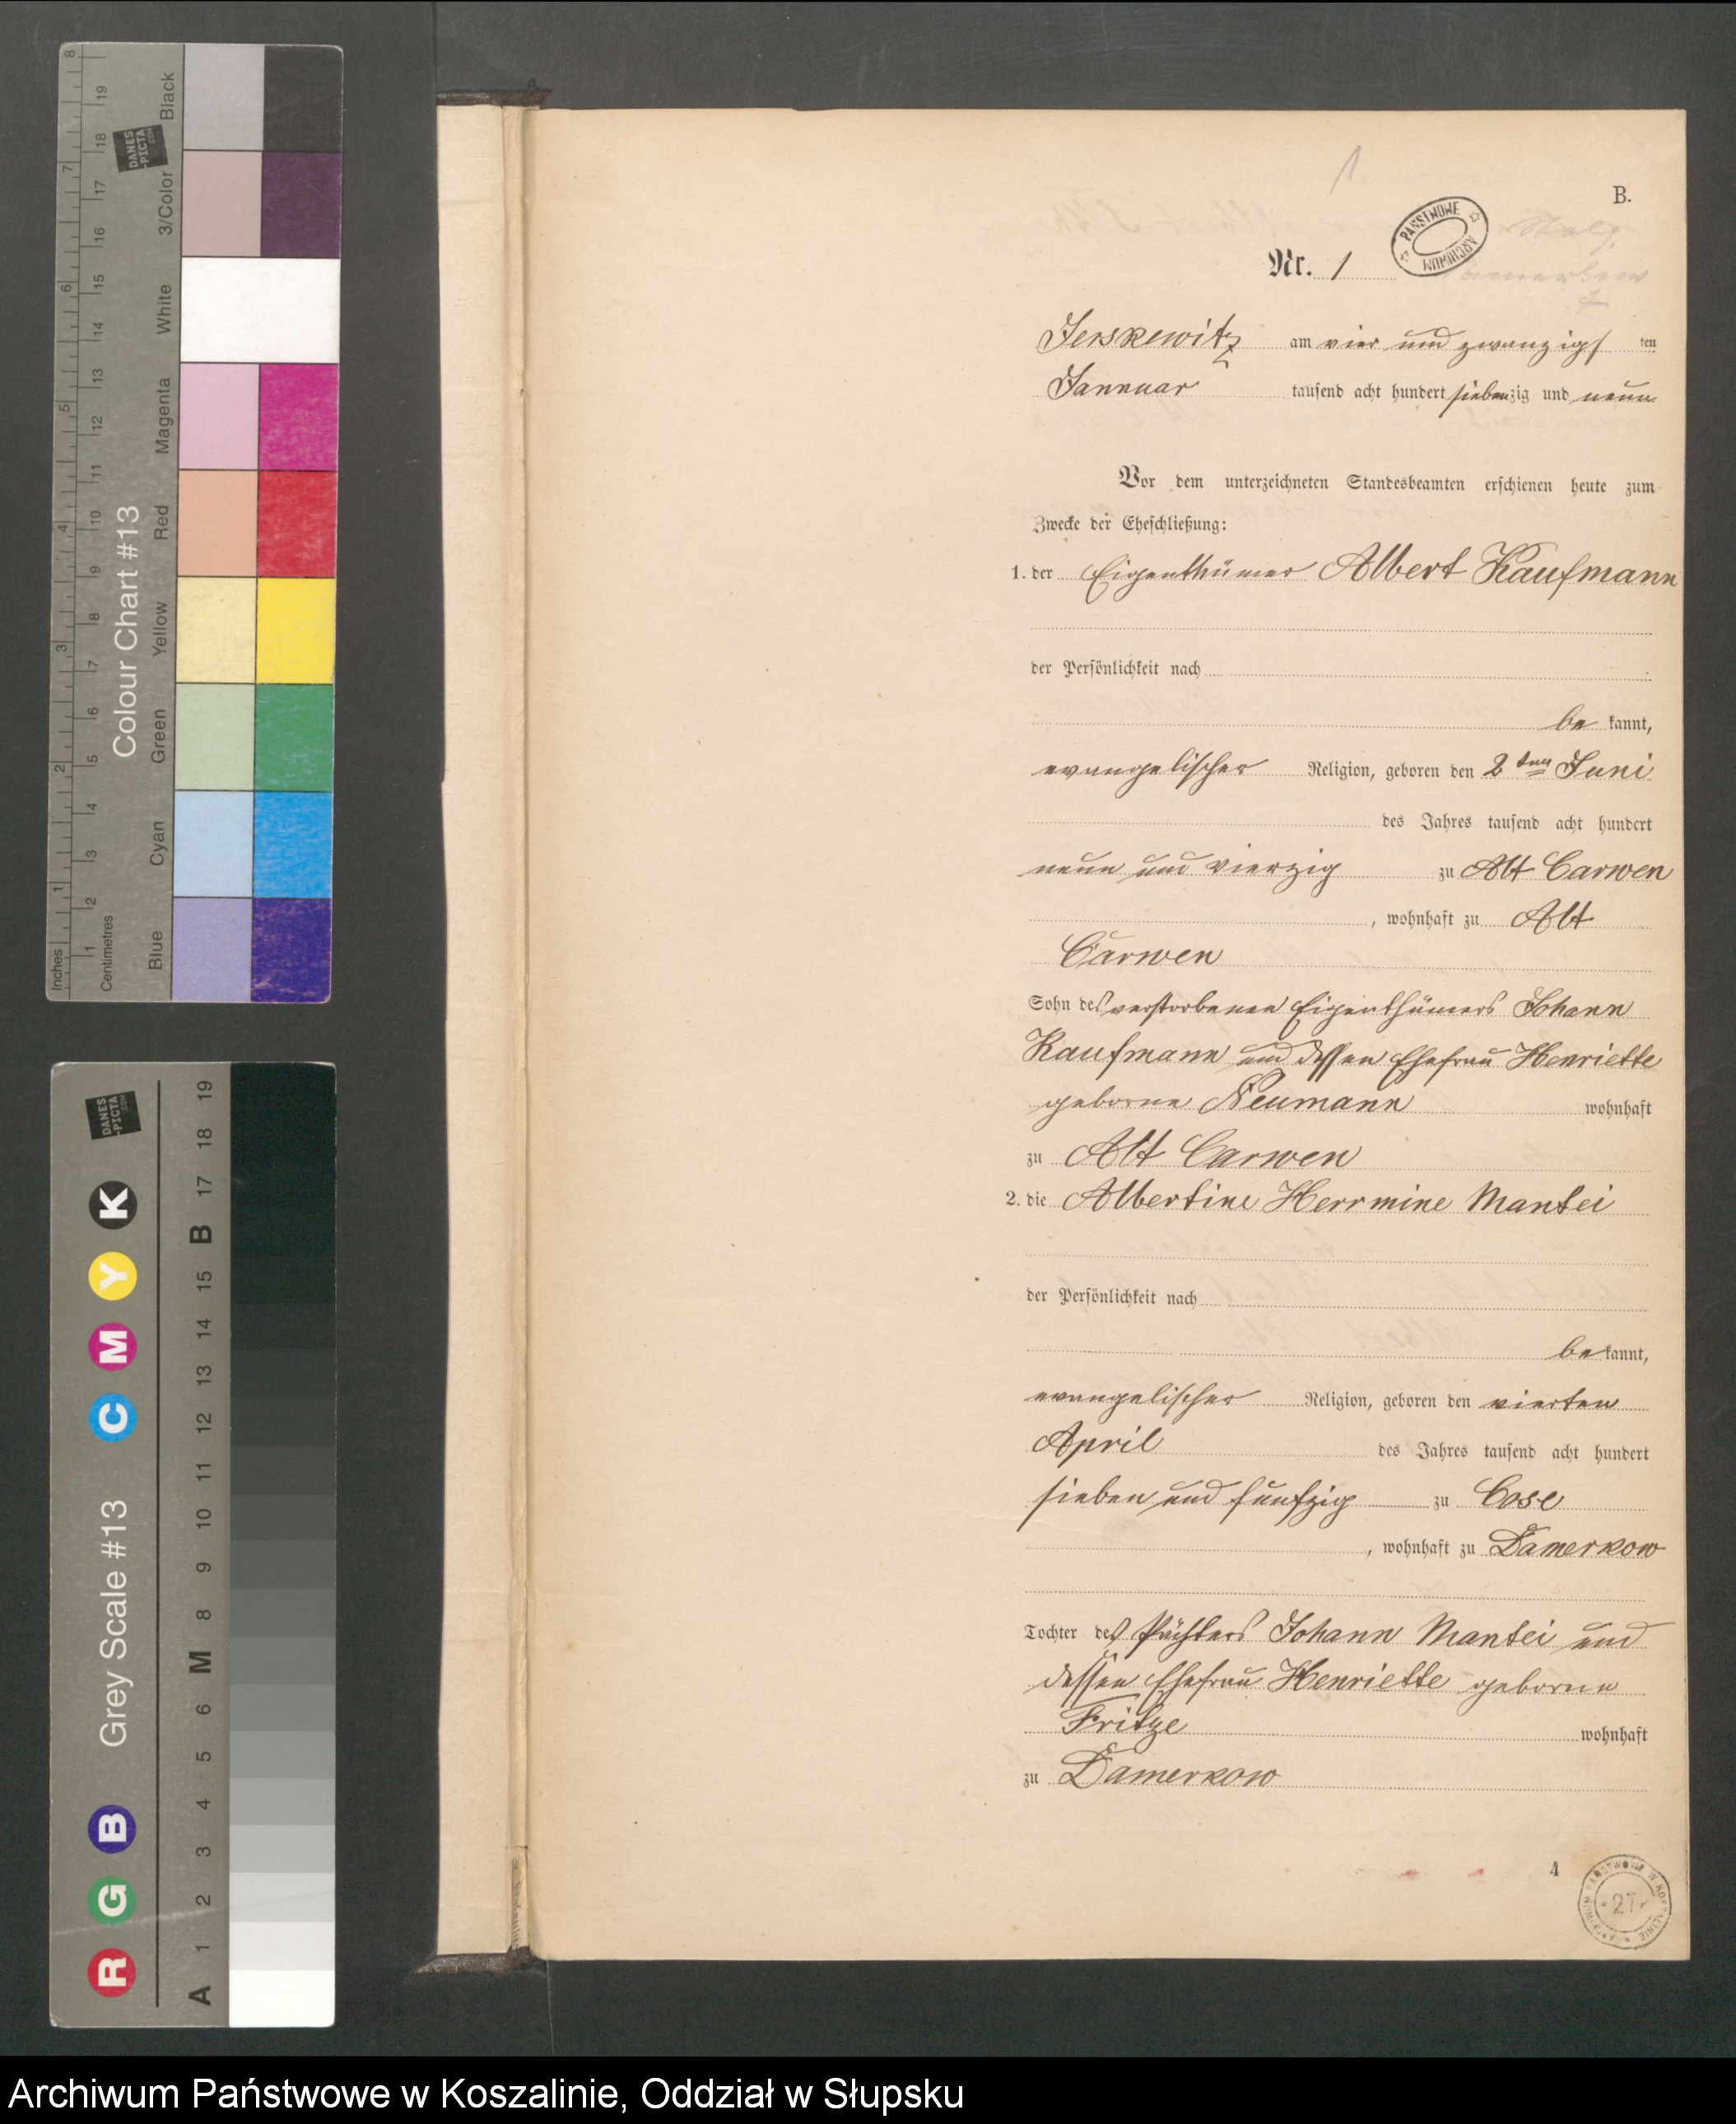 B.
PAŃSTWOWE ARCHIWUM
Nr. 1
Jerskewitz am vier und zwanzigs ten
Jannuar tausend acht hundert siebenzig und neun
Vor dem unterzeichneten Standesbeamten erschienen heute zum
Zwecke der Eheschließung:
1. der Eigenthümer Albert Kaufmann
der Persönlichkeit nach
be kannt,
evangelischer Religion, geboren den 2ten Juni
des Jahres tausend acht hundert
neun und vierzig zu Alt Carwen
, wohnhaft zu Alt
Carwen
Sohn des verstorbenen Eigenthümers Johann
Kaufmann und dessen Ehefrau Henriette
geborne Neumann wohnhaft
zu Alt Carwen
2. die Albertine Herrmine Mantei
der Persönlichkeit nach
be kannt,
evangelischer Religion, geboren den vierten
April des Jahres tausend acht hundert
sieben und funfzig zu Cose
, wohnhaft zu Damerkow
Tochter des Pächters Johann Mantei und
dessen Ehefrau Henriette geborne
Fritze wohnhaft
zu Damerkow
4
27
Colour Chart #13
Blue Cyan Green Yellow Red Magenta White 3/Color Black
Inches 1 2 3 4 5 6 7 8
Centimetres 1 2 3 4 5 6 7 8 9 10 11 12 13 14 15 16 17 18 19
DANES
-PICTA
.COM
Grey Scale #13
R G B C M Y K
A 1 2 3 4 5 6 M 8 9 10 11 12 13 14 15 B 17 18 19
DANES
-PICTA
.COM
Archiwum Państwowe w Koszalinie, Oddział w Słupsku